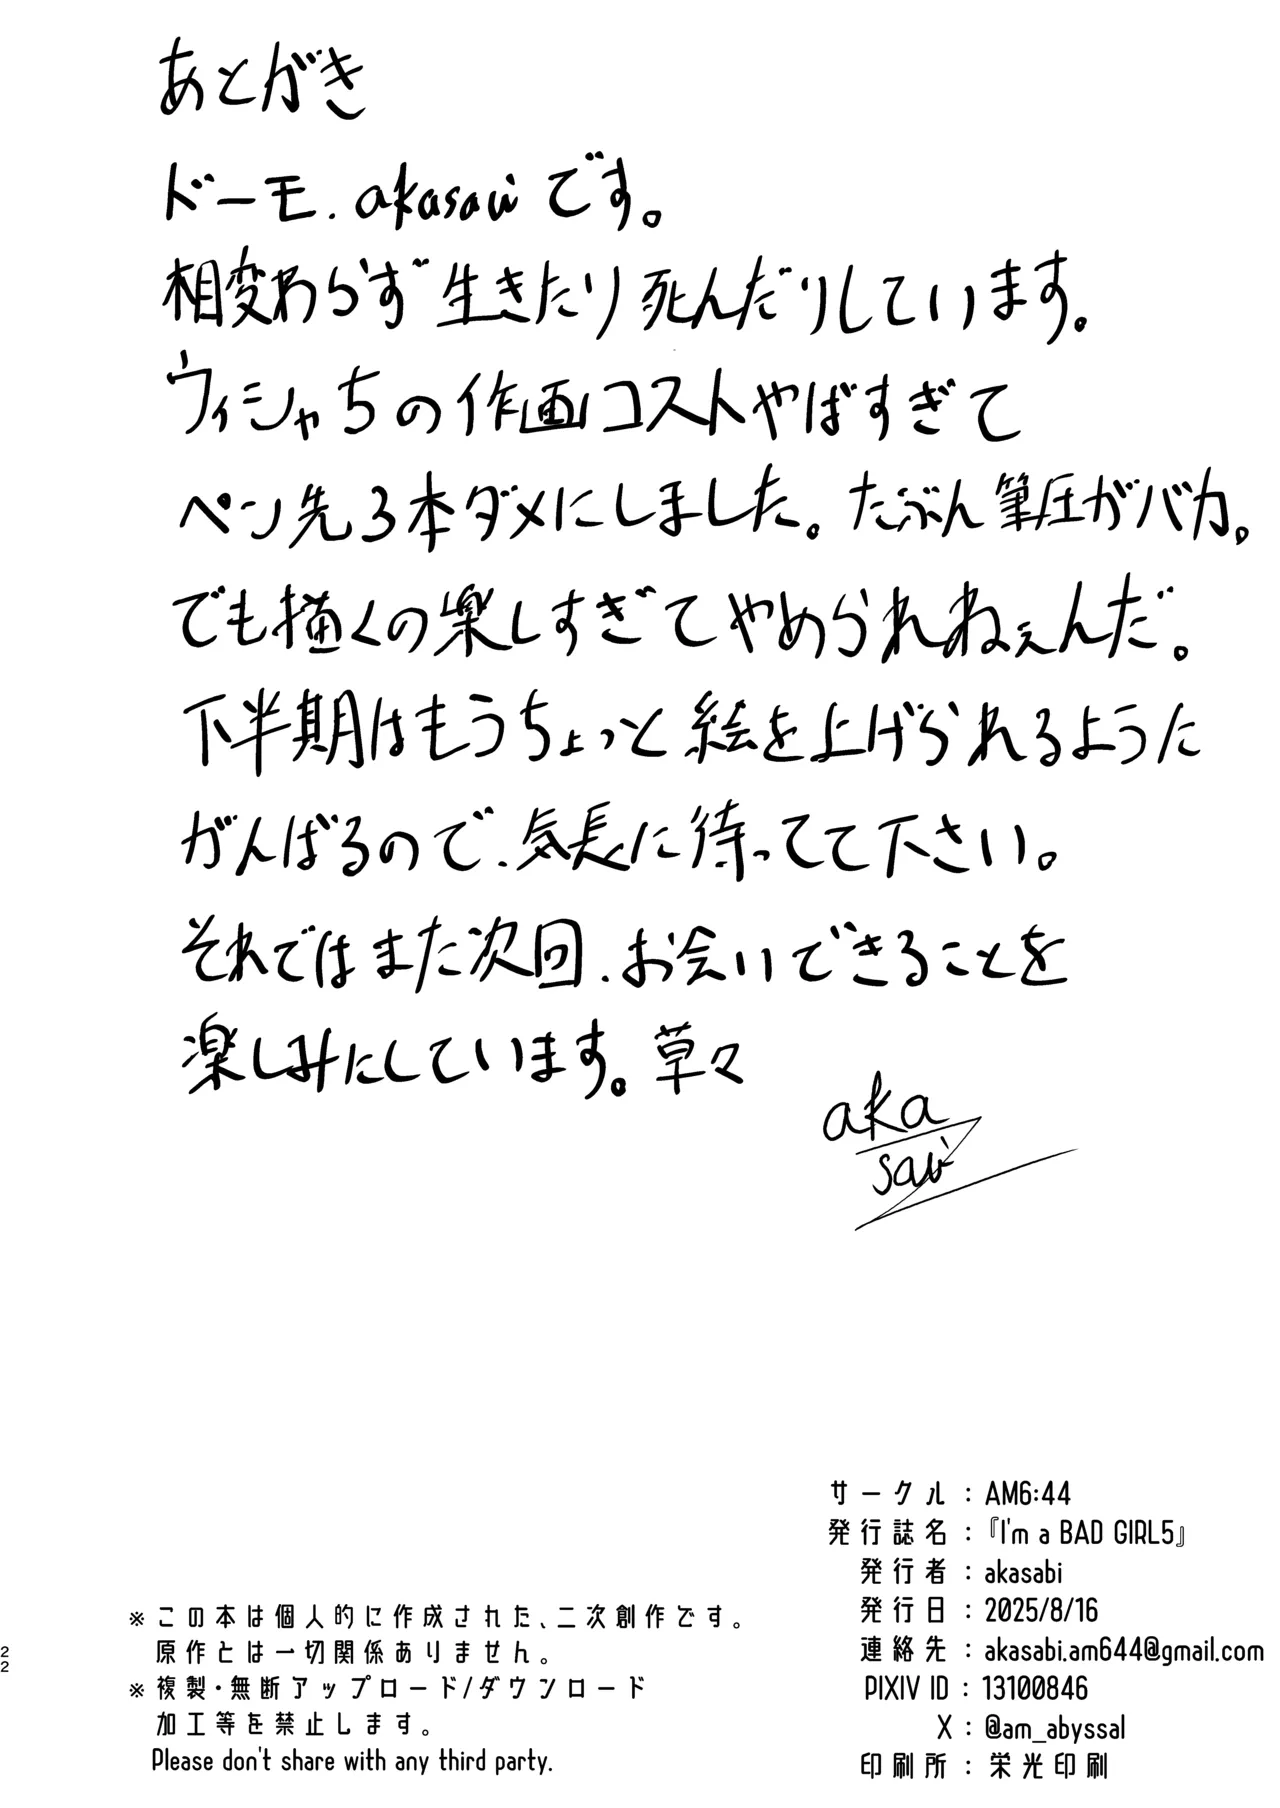 あとがき
ドーモ.akasaviです。
相変わらず生きたり死んだりしています。
ウィシャちの作画コストやばすぎて
ペン先3本ダメにしました。たぶん筆圧がバカ。
でも描くの楽しすぎてやめられねぇんだ。
下半期はもうちょっと絵を上げられるようた
がんばるので、気長に待ってて下さい。
それではまた次回、お会いできることを
楽しみにしています。草々
aka
savi
サークル：AM6:44
発行誌名：『I'm a BAD GIRL5』
発行者：akasabi
発行日：2025/8/16
連絡先：akasabi.am644@gmail.com
PIXIV ID：13100846
X：@am_abyssal
印刷所：栄光印刷
※この本は個人的に作成された、二次創作です。
原作とは一切関係ありません。
※複製・無断アップロード/ダウンロード
加工等を禁止します。
Please don't share with any third party.
22